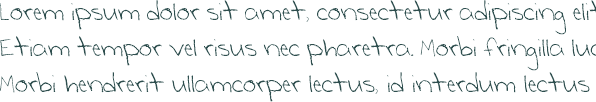 Lorem ipsum dolor sit amet, consectetur adipiscing elit
Etiam tempor vel risus nec pharetra. Morbi fringilla
Morbi hendrerit ullamcorper lectus, id interdum lectus